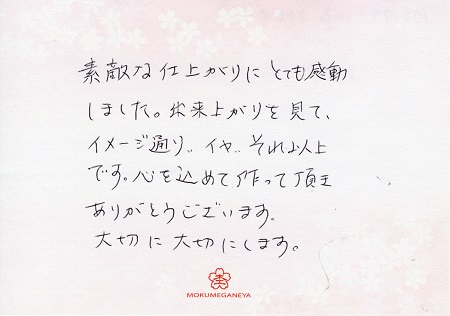 素敵な仕上がりにとても感動
しました。出来上がりを見て、
イメージ通り‥イヤ‥それ以上
です。心を込めて作って頂き
ありがとうございます。
大切に大切にします。
MOKUMEGANEYA